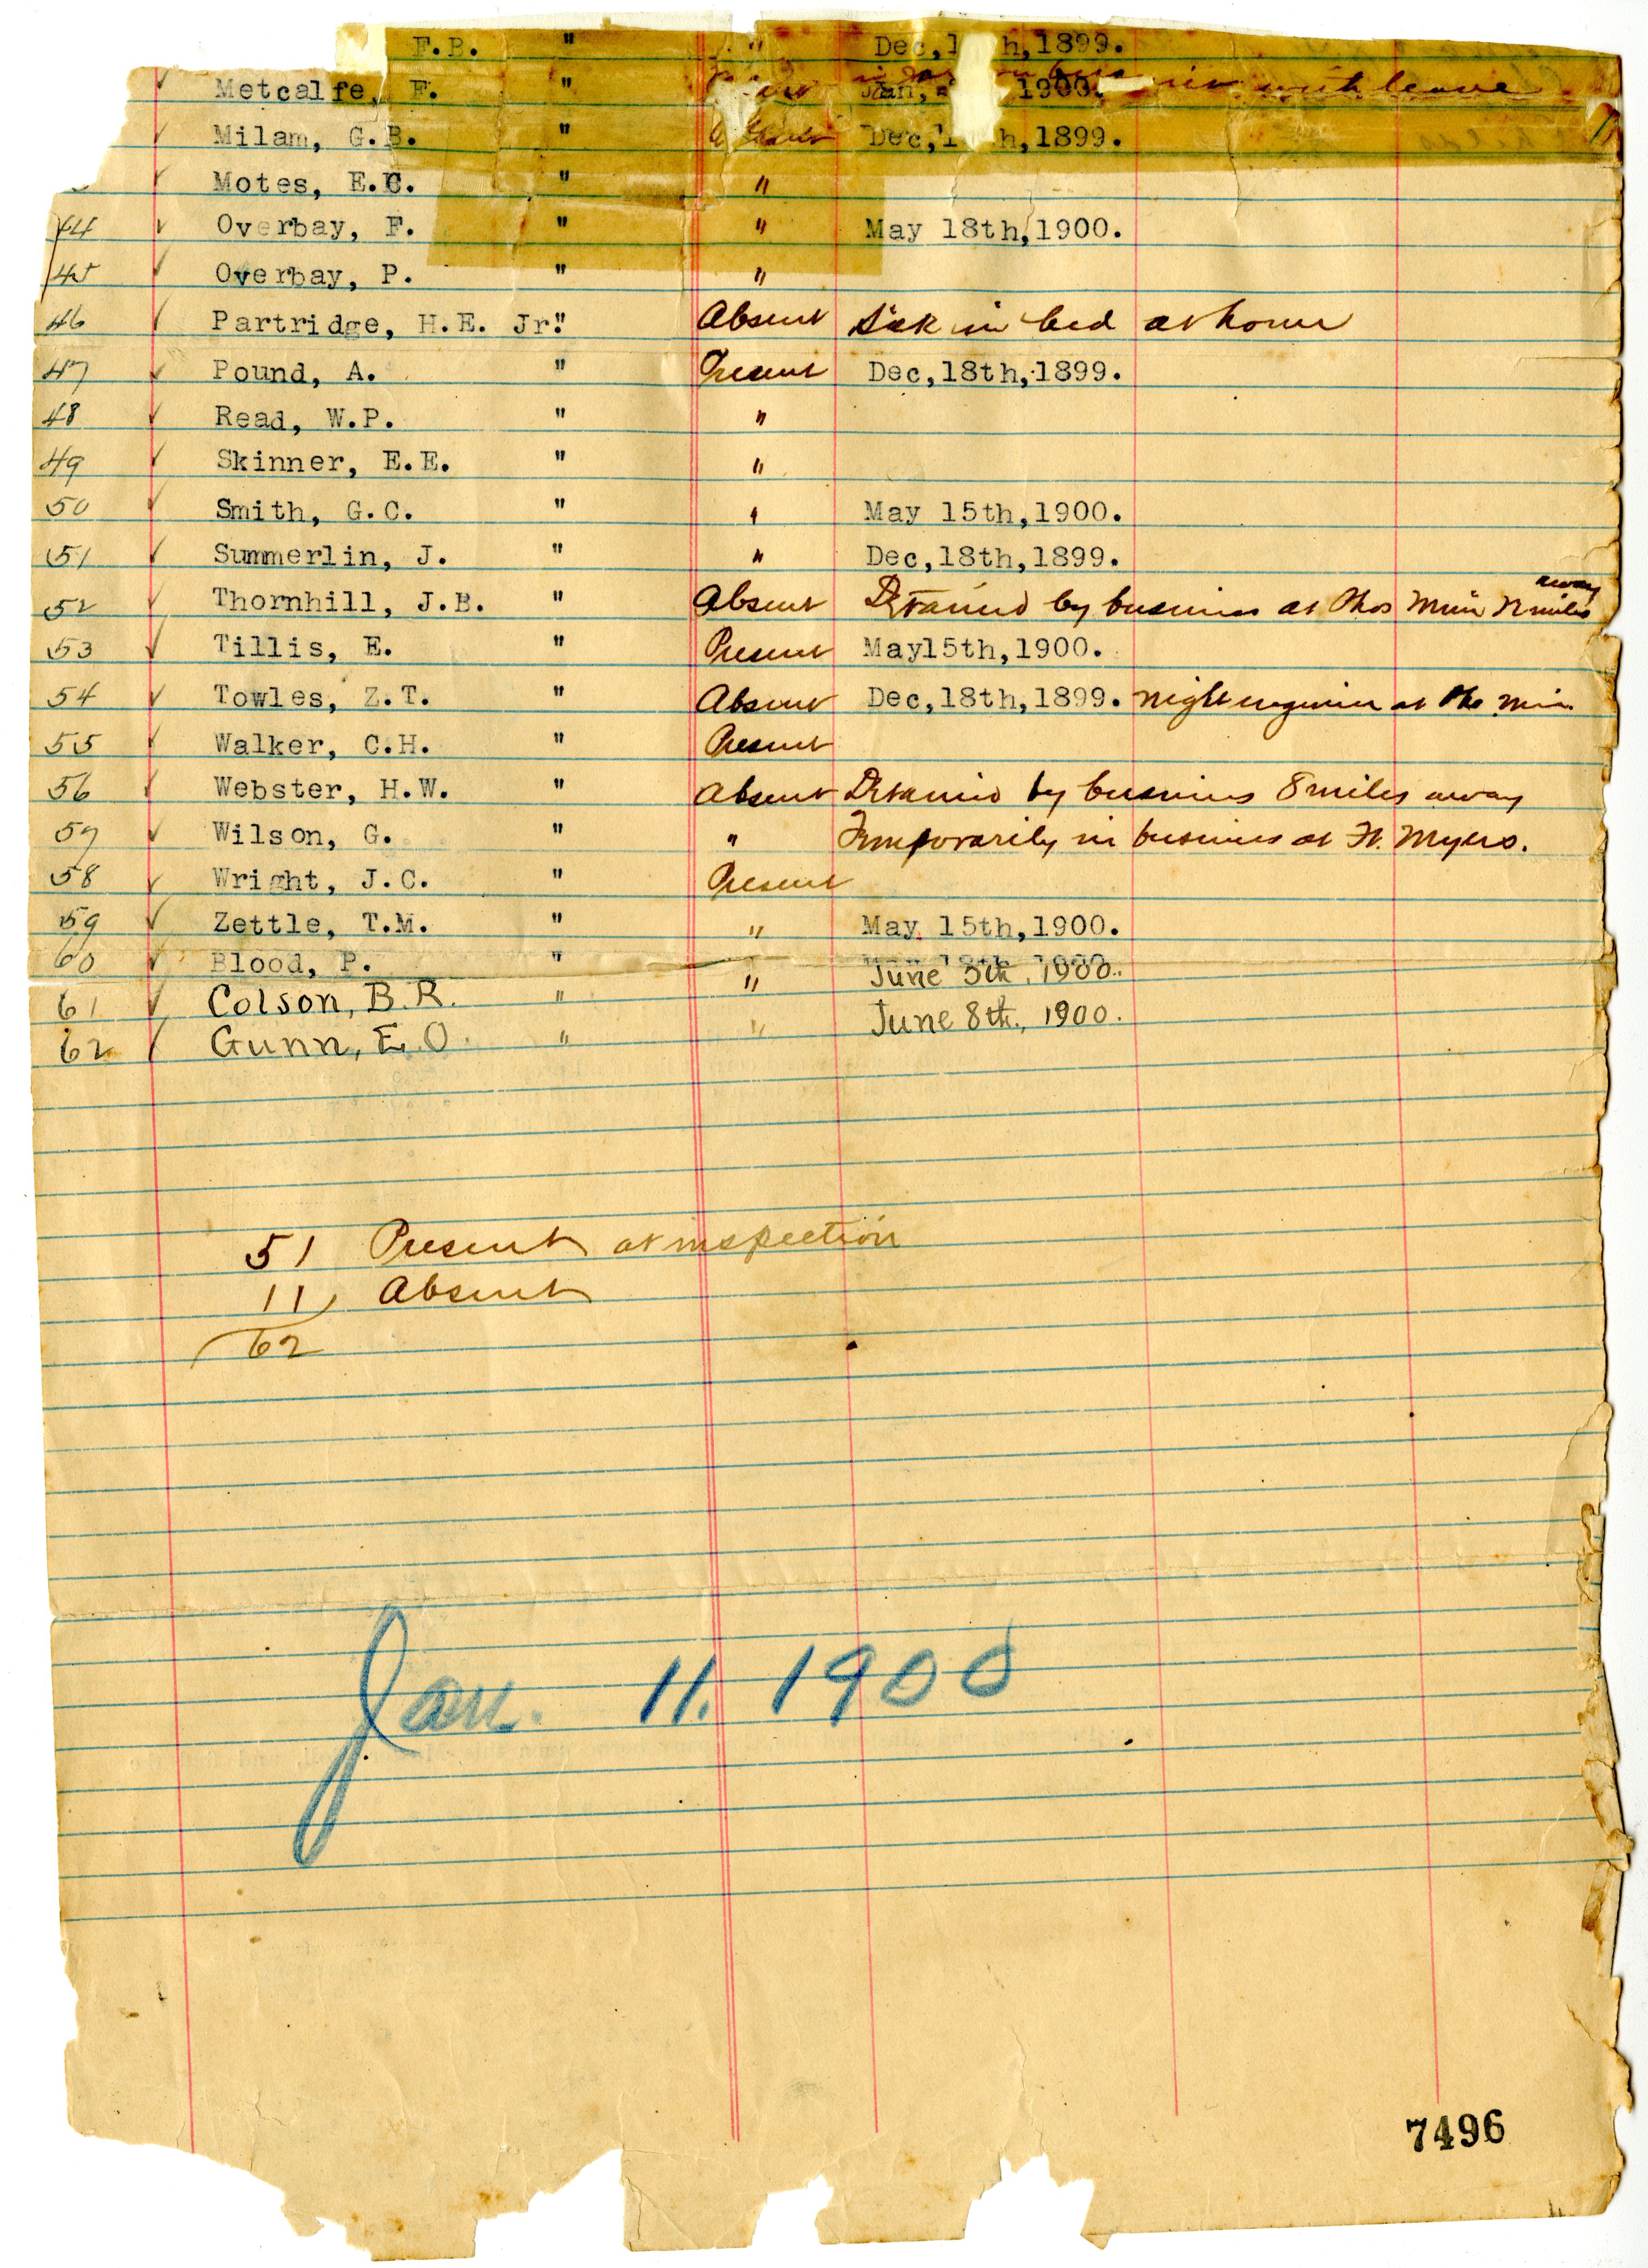 F.B. " " Dec, 1 h, 1899.
Metcalfe, F. " Jan, 1900. with leave
Milam, G.B. " Dec, 1 h, 1899.
Motes, E.C. " "
44 ✓ Overbay, F. " " May 18th, 1900.
45 ✓ Overbay, P. " "
46 ✓ Partridge, H.E. Jr." Absent Sick in bed at home
47 ✓ Pound, A. " Present Dec, 18th, 1899.
48 ✓ Read, W.P. " "
49 ✓ Skinner, E.E. " "
50 ✓ Smith, G.C. " " May 15th, 1900.
51 ✓ Summerlin, J. " " Dec, 18th, 1899.
52 ✓ Thornhill, J.B. " Absent Detained by business at Phos Mine miles away
53 ✓ Tillis, E. " Present May15th, 1900.
54 ✓ Towles, Z.T. " Absent Dec, 18th, 1899. night engineer at Pho. Min
55 ✓ Walker, C.H. " Present
56 ✓ Webster, H.W. " Absent Detained by business 8 miles away
57 ✓ Wilson, G. " " Temporarily in business at Ft. Myers.
58 ✓ Wright, J.C. " Present
59 ✓ Zettle, T.M. " " May 15th, 1900.
60 ✓ Blood, P. "
61 ✓ Colson, B.R. " " June 5th, 1900.
62 ✓ Gunn, E.O. " " June 8th, 1900.
51 Present at inspection
11 Absent
62
Jan. 11. 1900
7496